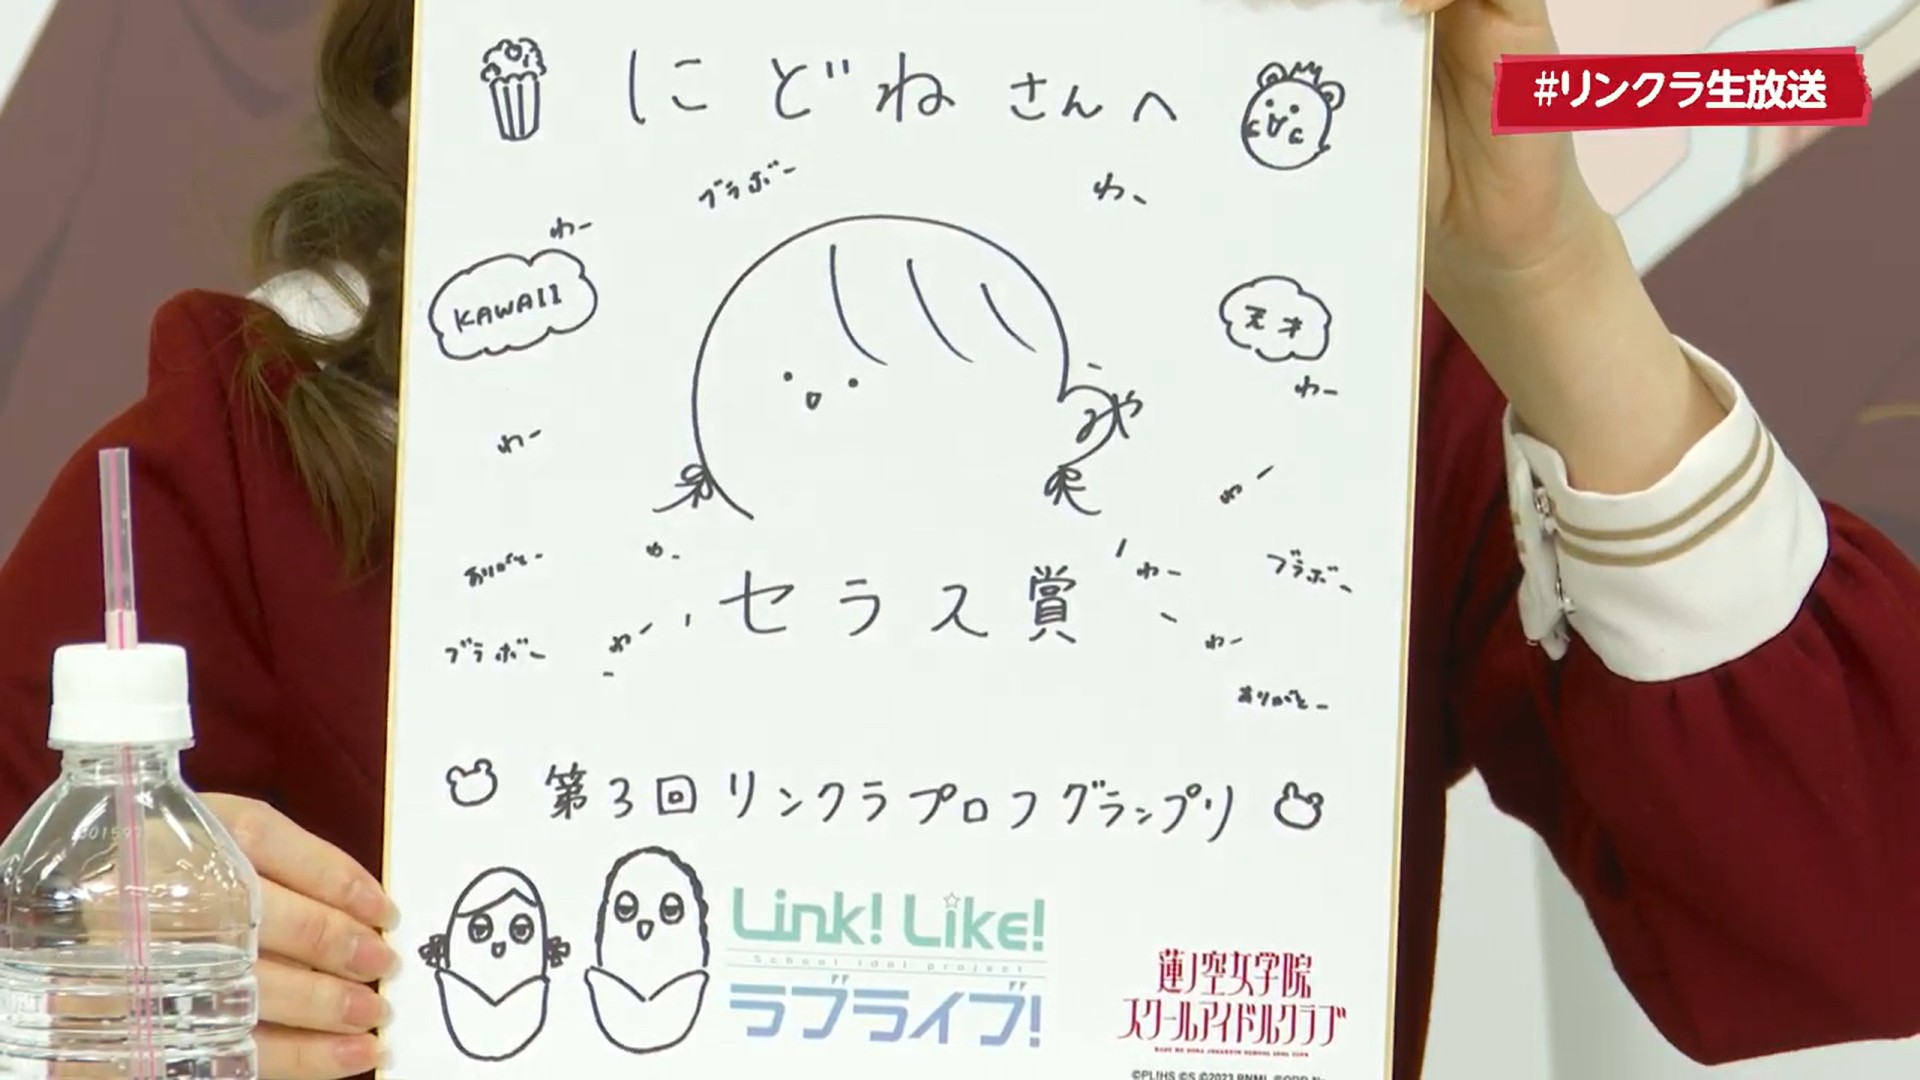 #リンクラ生放送
にどねさんへ
ブラボー
わー
わー
KAWAII
天才
わー
みや
わー
わー
ありがとー
わー
わー
ブラボー
セラス賞
ブラボー
わー
わー
ありがとー
第3回リンクラプロフグランプリ
Link! Like!
School idol project
ラブライブ!
蓮ノ空女学院
スクールアイドルクラブ